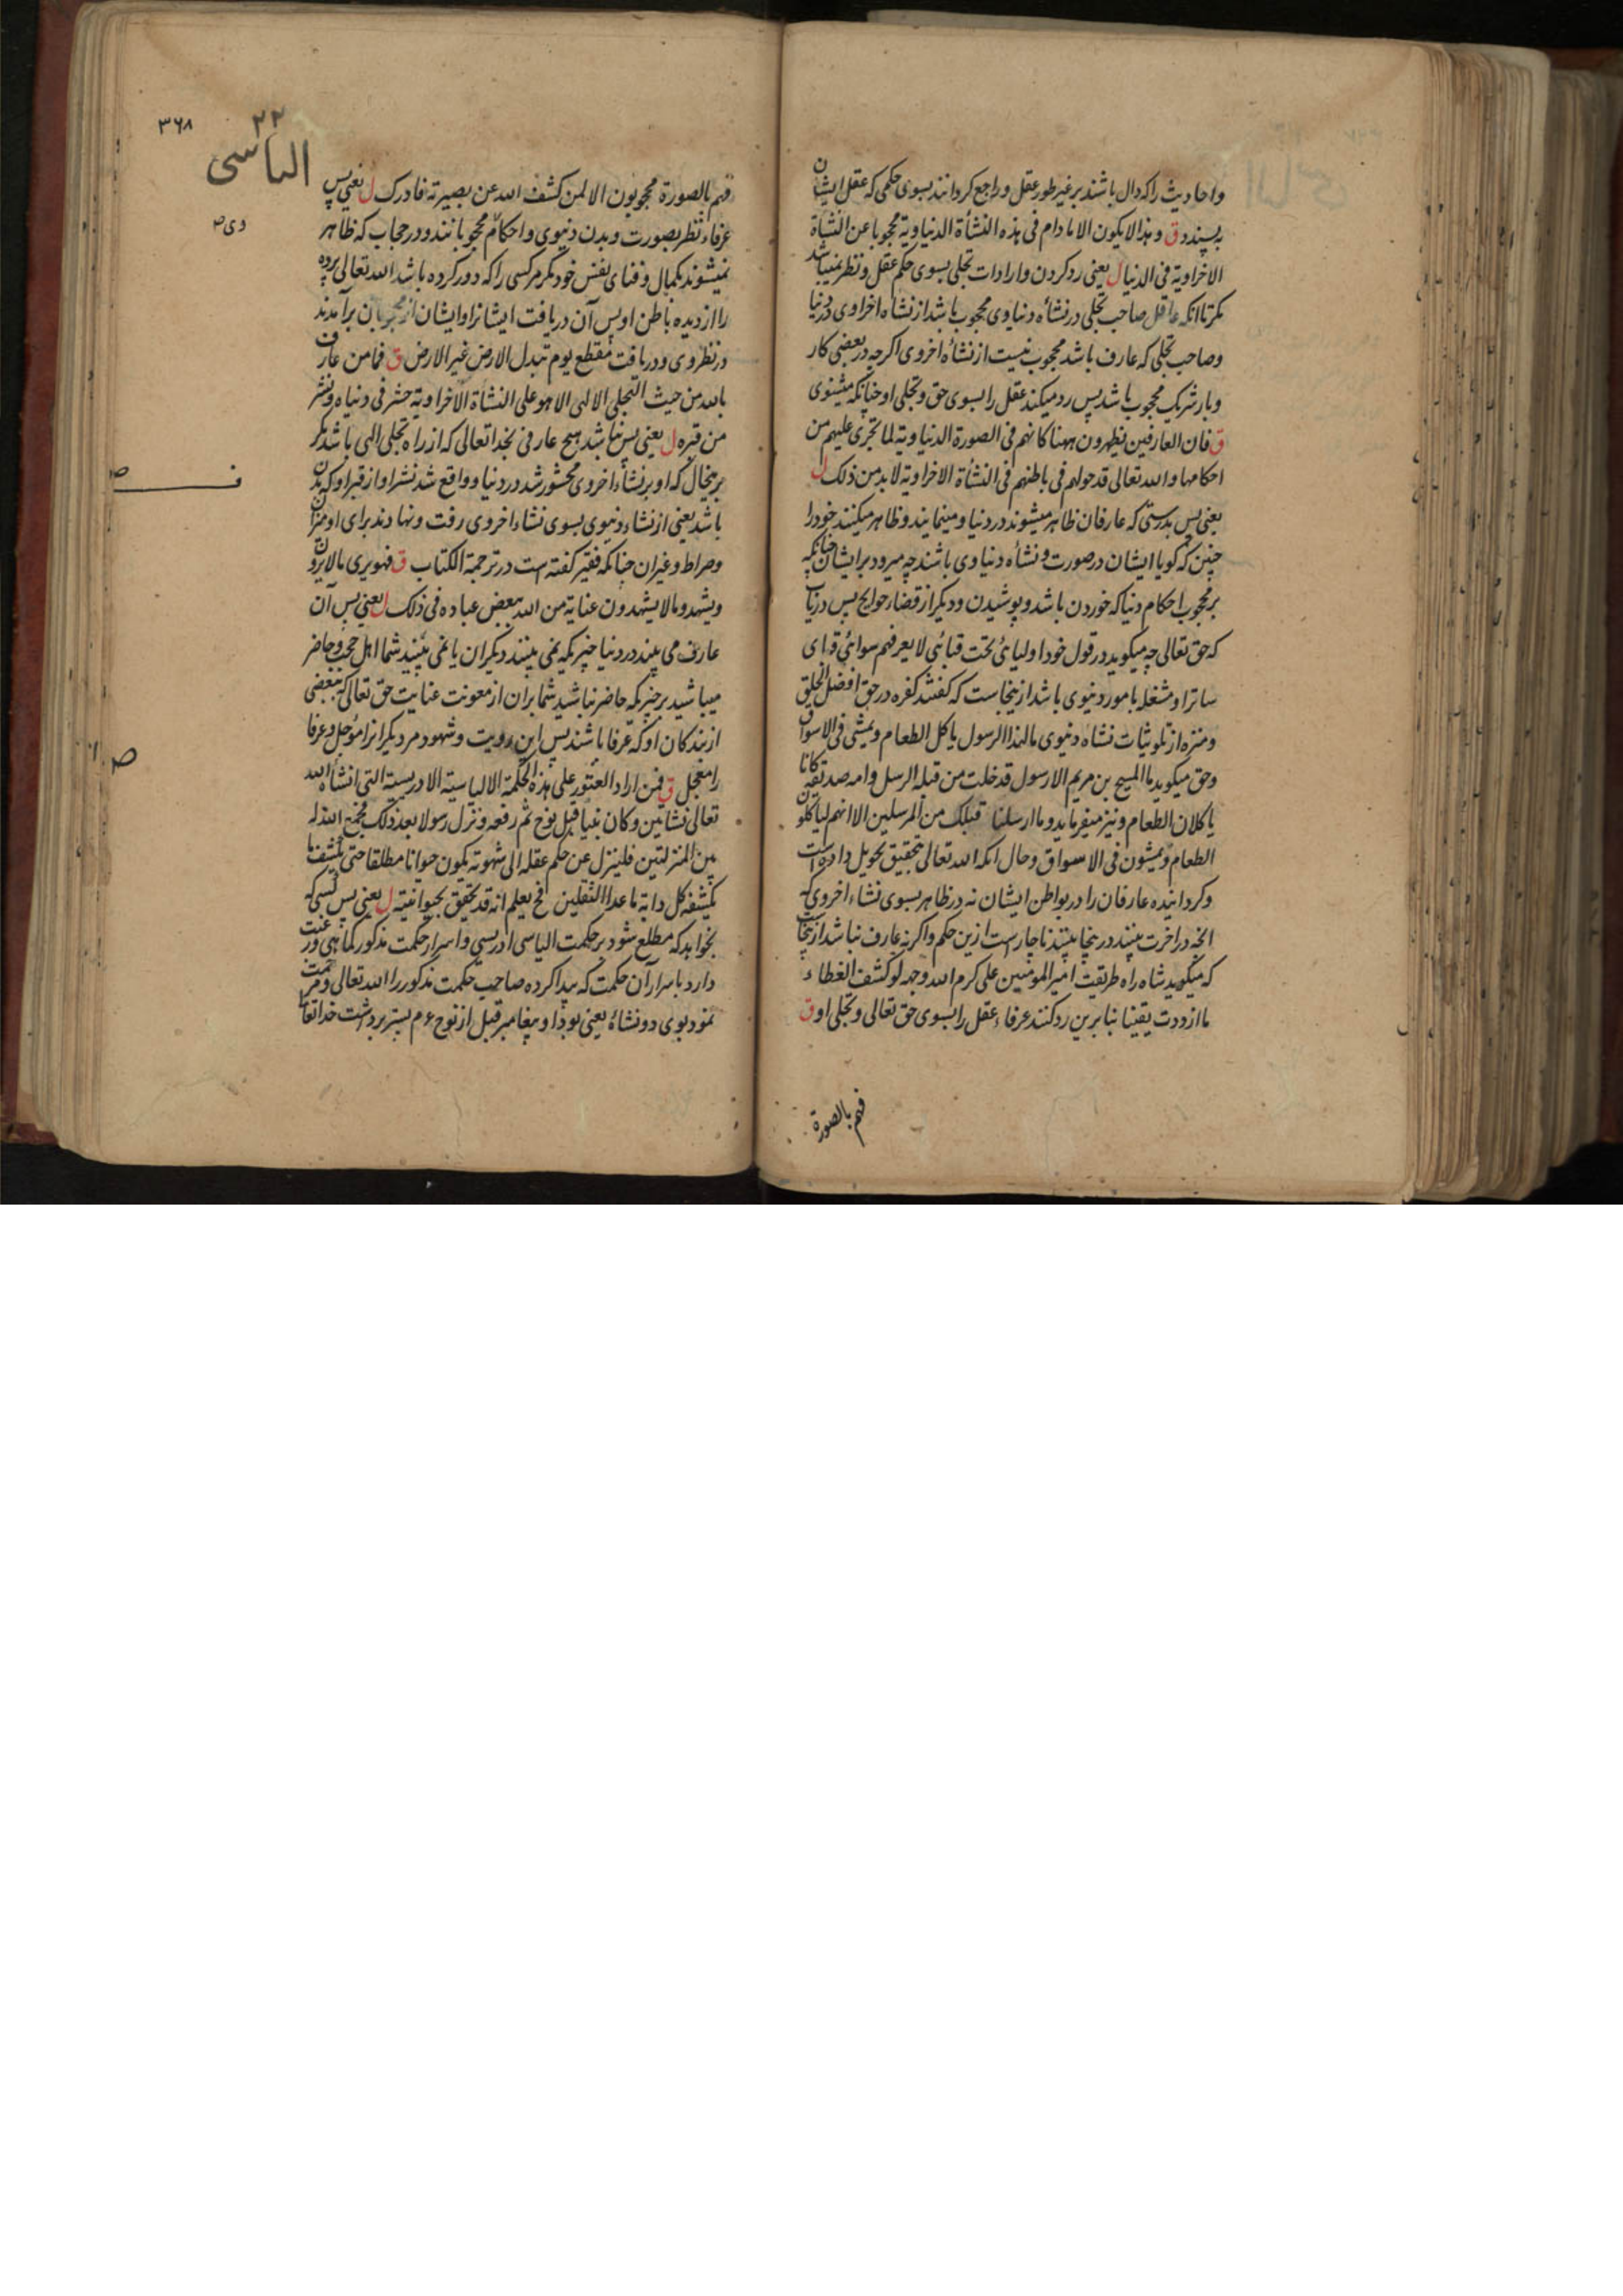 واحادیث راکه دال باشند بر غیر طور عقل و راجع کردانند بسوی حکمی که عقل ایشان
به پسندد ق وهذا لا یکون الا مادام فی هذه النشأة الدنیاویة محجوبا عن النشأة
الاخراویة فی الدنیا ل یعنی رد کردن واردات تجلی بسوی حکم عقل و نظر نمیباشد
مکر تا انکه عاقل صاحب تجلی در نشأه دنیاوی محجوب باشد از نشاه اخراوی در دنیا
وصاحب تجلی که عارف باشد محجوب نیست از نشأه اخروی اکرچه در بعضی کار
وبار شریک محجوب باشد پس رد میکند عقل را بسوی حق و تجلی او چنانکه میشنوی
ق فان العارفین یظهرون ههنا کانهم فی الصورة الدنیاویة لما تجری علیهم من
احکامها والله تعالی قد حولهم فی باطنهم فی النشأة الاخراویة لابد من ذلک ل
یعنی پس بدرستی که عارفان ظاهر میشوند در دنیا و مینمایند و ظاهر میکنند خود را
چنین که کویا ایشان در صورت و نشأه دنیاوی باشند چه میرود بر ایشان چنانکه
بر محجوب احکام دنیا که خوردن باشد و پوشیدن و دیکر از قضاء حوایج پس دریاب
که حق تعالی چه میکوید در قول خود اولیائی تحت قبائی لا یعرفهم سوائی قبای
ساتر او مشغله بامور دنیوی باشد ازینجاست که کفتند کفره در حق افضل الخلق
ومنزه از تلوثیات نشاه دنیوی مالهذا الرسول یاکل الطعام ویمشی فی الاسواق
وحق میکوید ما المسیح بن مریم الا رسول قد خلت من قبله الرسل وامه صدیقة کانا
یاکلان الطعام و نیز میفرماید وما ارسلنا قبلک من المرسلین الا انهم لیاکلون
الطعام ویمشون فی الاسواق وحال انکه الله تعالی بتحقیق تحویل داده است
وکردانیده عارفان را در بواطن ایشان نه در ظاهر بسوی نشاء اخروی که
انچه در اخرت بینند درینجا بینند ناچار است ازین حکم واکرنه عارف نباشد ازینجاست
که میکوید شاه راه طریقت امیر المومنین علی کرم الله وجهه لو کشف الغطاء
ما ازددت یقینا بنابرین رد کنند عرفاء عقل را بسوی حق تعالی و تجلی او ق
فهم بالصورة
۳۶۸
۲۲
الیاسی
فهم بالصورة محجوبون الا لمن کشف الله عن بصیرته فادرک ل یعنی پس
عرفاء نظر بصورت و بدن دنیوی و احکام محجوبانند و در حجاب که ظاهر
نمیشوند بکمال و فنای نفس خود مکر مر کسی را که دور کرده باشد الله تعالی پرده
را از دیده باطن او پس آن دریافت ایشانرا و ایشان از محجوبان برآمدند
در نظر وی و دریافت مقطع یوم تبدل الارض غیر الارض ق فما من عارف
بالله من حیث التجلی الالهی الا هو علی النشأة الاخراویة حشر فی دنیاه ونشر
من قبره ل یعنی پس نباشد هیچ عارفی بخدا تعالی که از راه تجلی الهی باشد مکر
برینحال که او بر نشأء اخروی محشور شد در دنیا و واقع شد نشر او از قبر او که بدن
باشد یعنی از نشاء دنیوی بسوی نشاء اخروی رفت و نهادند برای او میزان
وصراط وغیران چنانکه فقیر کفته است در ترجمة الکتاب ق فهو یری ما لا یرون
ویشهد ما لا یشهدون عنایة من الله ببعض عباده فی ذلک ل یعنی پس آن
عارف می بیند در دنیا چیزیکه نمی بینند دیکران یا نمی بینید شما اهل حجب و حاضر
میباشد بر چیزیکه حاضر نباشید شما بران از معونت عنایت حق تعالی که ببعضی
از بندکان او که عرفا باشند پس این رویت و شهود مر دیکرانرا موجل و عرفا
را معجل ق فمن اراد العثور علی هذه الحکمة الالیاسیة الادریسیة التی انشأه الله
تعالی نشأتین وکان نبیا قبل نوح ثم رفعه و نزل رسولا بعد ذلک فجمع الله له
بین المنزلتین فلینزل عن حکم عقله الی شهوته یکون حیوانا مطلقا حتی یکشف ما
یکشفه کل دابة ما عدا الثقلین فح یعلم انه قد تحقق بحیوانیته ل یعنی پس کسی که
بخواهد که مطلع شود بر حکمت الیاسی ادریسی و اسرار حکمت مذکور کماهی و رغبت
دارد باسرار آن حکمت که پیدا کرده صاحب حکمت مذکور را الله تعالی و مرحمت
نمود بوی دو نشأة یعنی بود او پیغامبر قبل از نوح ۶م پستر برداشت خدا تعالی